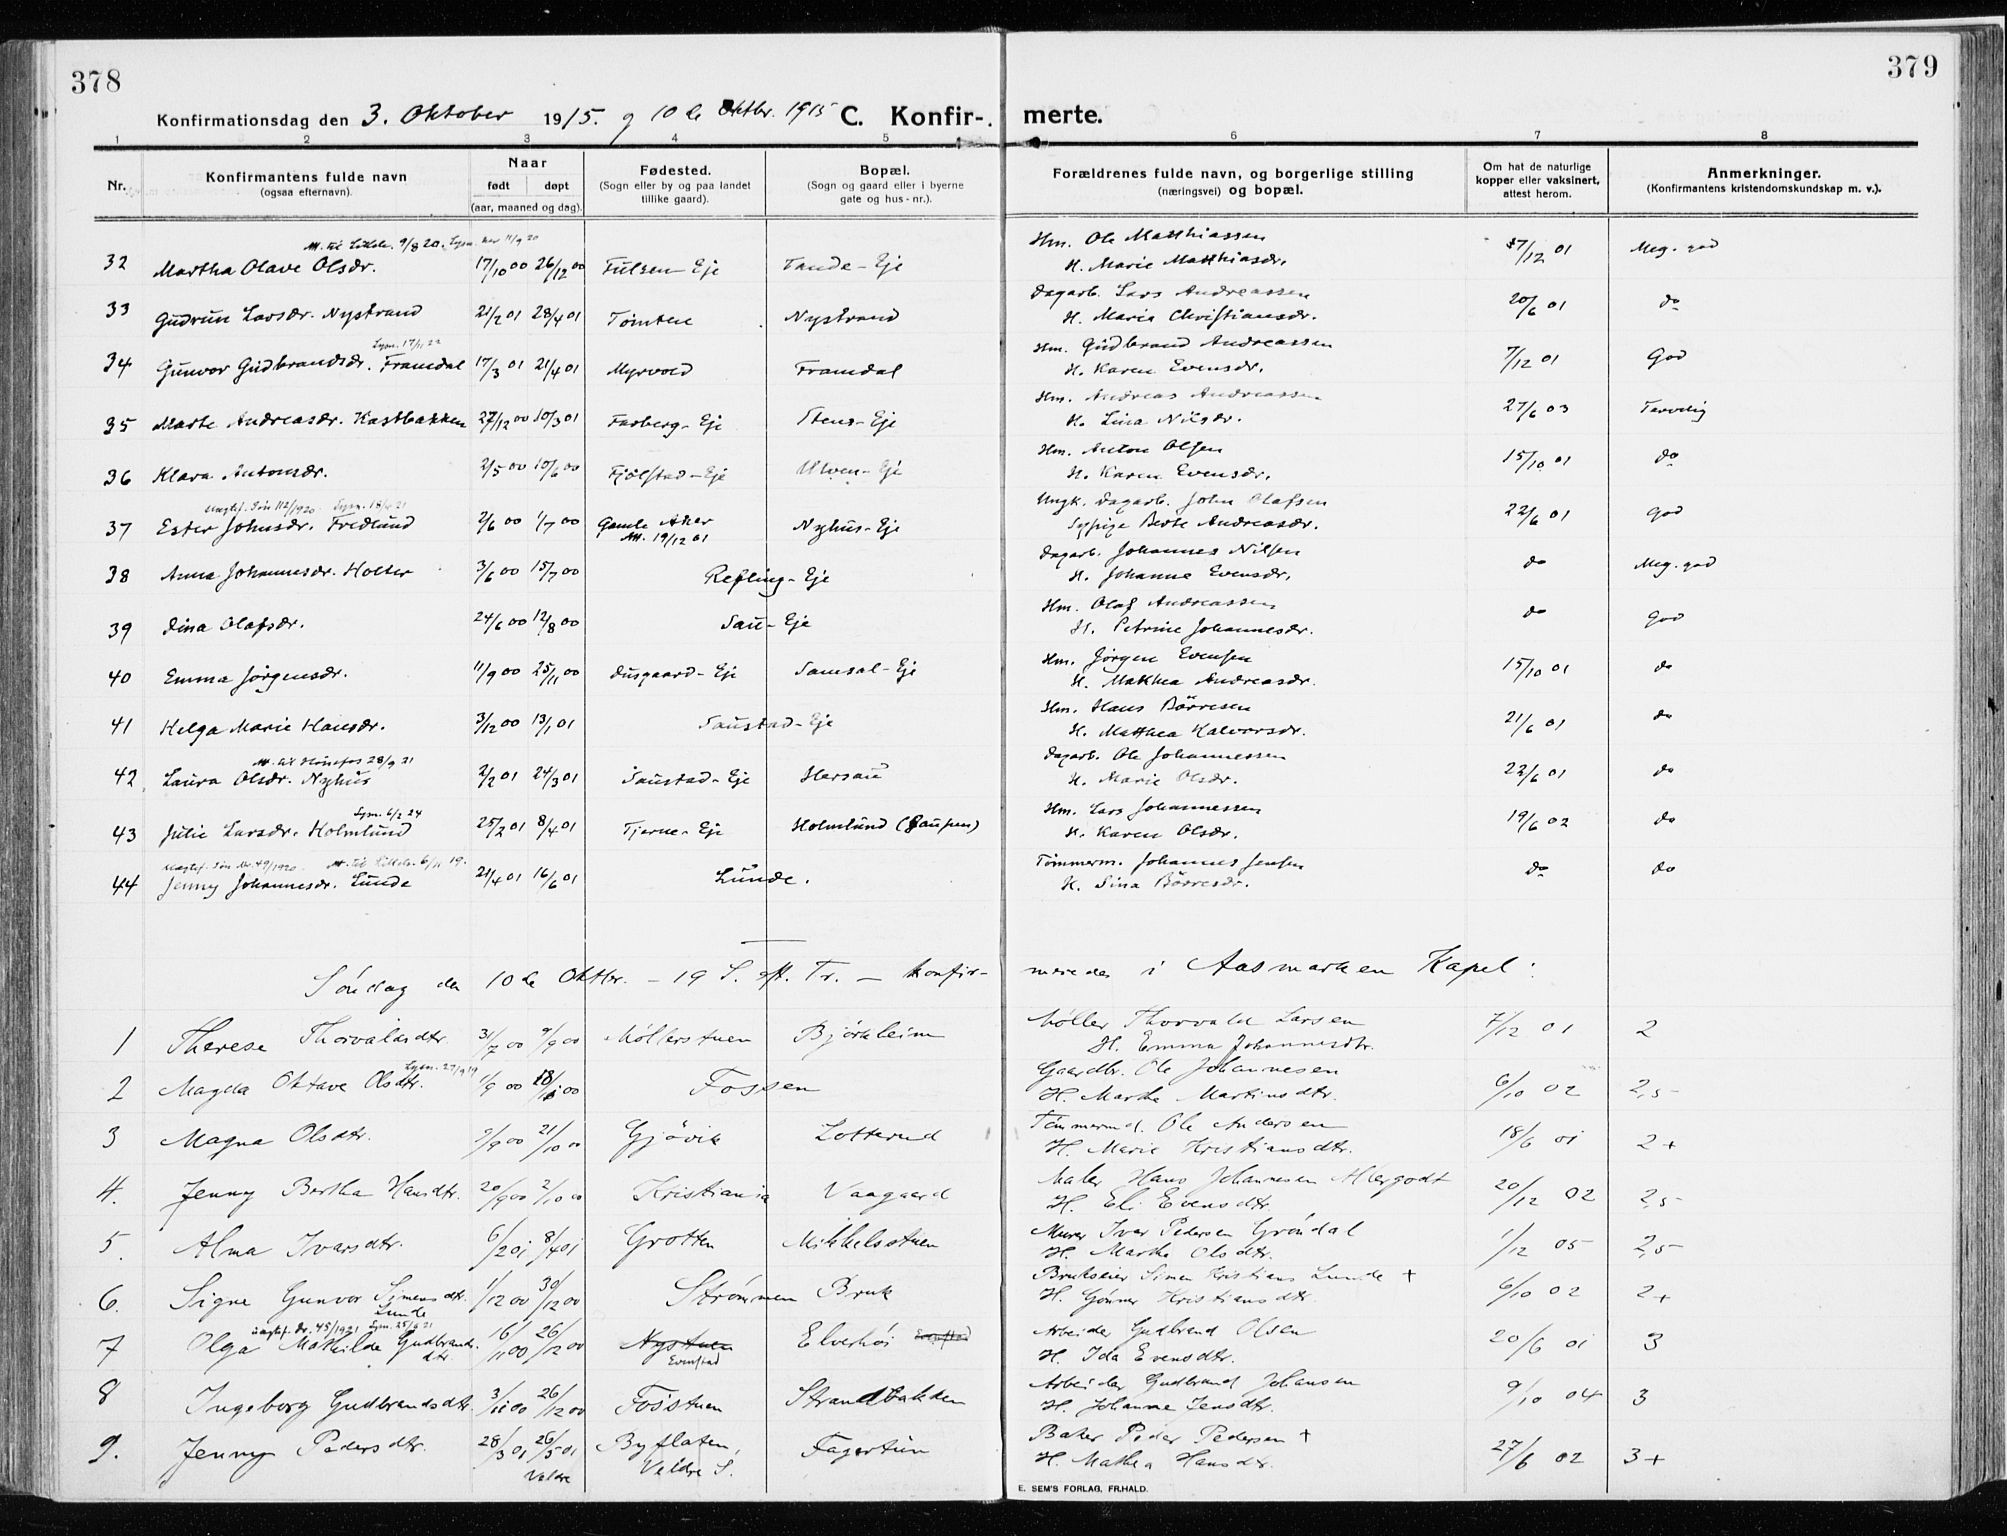 378
379
Konfirmationsdag den 3. Oktober 1915. og 10de Oktbr. 1915 C. Konfir- merte.
1 2 3 4 5 6 7 8
Nr.
Konfirmantens fulde navn
(ogsaa efternavn).
Naar
født døpt
(aar, maaned og dag).
Fødested.
(Sogn eller by og paa landet
tillike gaard).
Bopæl.
(Sogn og gaard eller i byerne
gate og hus-nr.).
Forældrenes fulde navn, og borgerlige stilling
(næringsvei) og bopæl.
Om hat de naturlige
kopper eller vaksinert,
attest herom.
Anmerkninger.
(Konfirmantens kristendomskundskap m. v.).
Att. til Lilleh. 9/8 20. Lysn. her 11/9 20
Hm. Ole Matthiassen
32 Martha Olave Olsdr. 17/10 00 26/12 00 Fulsen-Eje Tande-Eje H. Marie Matthiasdr. 17/12 01 Meg. god
Dagarb. Lars Andreassen
33 Gudrun Larsdr. Nystrand 21/2 01 28/4 01 Tomten Nystrand H. Maria Christiansdr. 20/6 01 do
Lysn. 17/11 22
Hm. Gudbrand Andreassen
34 Gunvor Gudbrandsdr. Framdal 17/3 01 21/4 01 Myrvold Framdal H. Karen Evensdr. 7/12 01 God
Hm. Andreas Andreassen
35 Marte Andreasdr. Kastbakken 27/12 00 10/3 01 Farberg-Eje Stens-Eje H. Lina Nilsdr. 27/6 03 Tarvelig
Hm. Anton Olsen
36 Klara Antonsdr. 2/5 00 10/6 00 Fjölstad-Eje Ulven-Eje H. Karen Evensdr. 15/10 01 do
Uegtef. Søn 112/1920 Lysn. 18/ 21
Ungk. Dagarb. John Olafsen
37 Ester Johnsdr. Fredlund 2/6 00 1/7 00 Gamle Aker Nyhus-Eje Sypige Berte Andreasdr. 22/6 01 God
Att. 19/12 01
Dagarb. Johannes Nilsen
38 Anna Johannesdr. Holter 3/6 00 15/7 00 Refling-Eje H. Johanne Evensdr. do Meg. god
Hm. Olaf Andreassen
39 Dina Olafsdr. 24/6 00 12/8 00 Sau-Eje H. Petrine Johannesdr. do God
Hm. Jörgen Evensen
40 Emma Jörgensdr. 11/9 00 25/11 00 Dusgaard-Eje Samsal-Eje H. Mathea Andreasdr. 15/10 01 do
Hm. Hans Börresen
41 Helga Marie Hansdr. 3/12 00 13/1 01 Saustad-Eje H. Matthea Halvorsdr. 21/6 01 do
Att. til Hönefos 28/9 21
Dagarb. Ole Johannessen
42 Laura Olsdr. Nyhus 2/2 01 24/3 01 Saustad-Eje Hersau H. Marie Olsdr. 22/6 01 do
Lysn. 6/2 24
Hm. Lars Johannessen
43 Julie Larsdr. Holmlund 25/2 01 8/4 01 Tjerne-Eje Holmlund (Gaupen) H. Karen Olsdr. 19/6 02 do
Uegtef. Søn Nr. 49/1920 Att. til Lilleh. 6/11 19.
Tömmerm. Johannes Jensen
44 Jenny Johannesdr. Lunde 21/4 01 16/6 01 Lunde. H. Sina Börresdr. do do
Söndag den 10de Oktbr. – 19 S. eft. Tr. – konfir- meredes i Aasmarken Kapel:
Møller Thorvald Larsen
1 Therese Thorvaldsdtr. 31/7 00 9/9 00 Möllerstuen Björkheim H. Emma Johannesdtr. 7/12 01 2
Lysn. 27/9 19
Gaardbr. Ole Johannesen
2 Magda Oktave Olsdtr. 1/9 00 Fossen H. Marthe Martinsdtr. 6/10 02 2,5
Tömmermd. Ole Andersen
3 Magna Olsdtr. 2/9 00 21/10 00 Gjövik Lotterud H. Marie Kristiansdtr. 18/6 01 2+
Maler Hans Johannesen Allergodt
4. Jenny Bertha Hansdtr. 20/9 00 2/10 00 Kristiania Vaagaard H. Eli Evensdtr. 20/12 02 2,5
Murer Ivar Pedersen Gröndal
5. Alma Ivarsdtr. 6/2 01 8/4 01 Grotten Mikkelsstuen H. Marthe Olsdtr. 1/12 05 2,5
Brukseier Simen Kristians. Lunde +
6. Signe Gunvor Simensdtr. 1/12 00 30/12 00 Strømmen Bruk H. Gunner Kristiansdtr. 6/10 02 2+
Lunde
Uegtef. Dr. 45/1921 Lysn. 25/6 21
Arbeider Gudbrand Olsen
7 Olga Mathilde Gudbrands- 16/11 00 26/12 00 Nystuen Elverhöi Evenstad H. Ida Evensdtr. 20/6 01 3
dtr. Evenstad
Arbeider Gudbrand Johansen
8 Ingeborg Gudbrandsdtr. 3/11 00 26/12 00 Fosstuen Strandbakken H. Johanne Jensdtr. 9/10 04 3
Baker Peder Pedersen +
9. Jenny Pedersdtr. 28/3 01 26/5 01 Byflaten, Fagertun H. Mathea Hansdtr. 27/6 02 3+
Veldre Veldre S.
E. SEM'S FORLAG, FR.HALD.